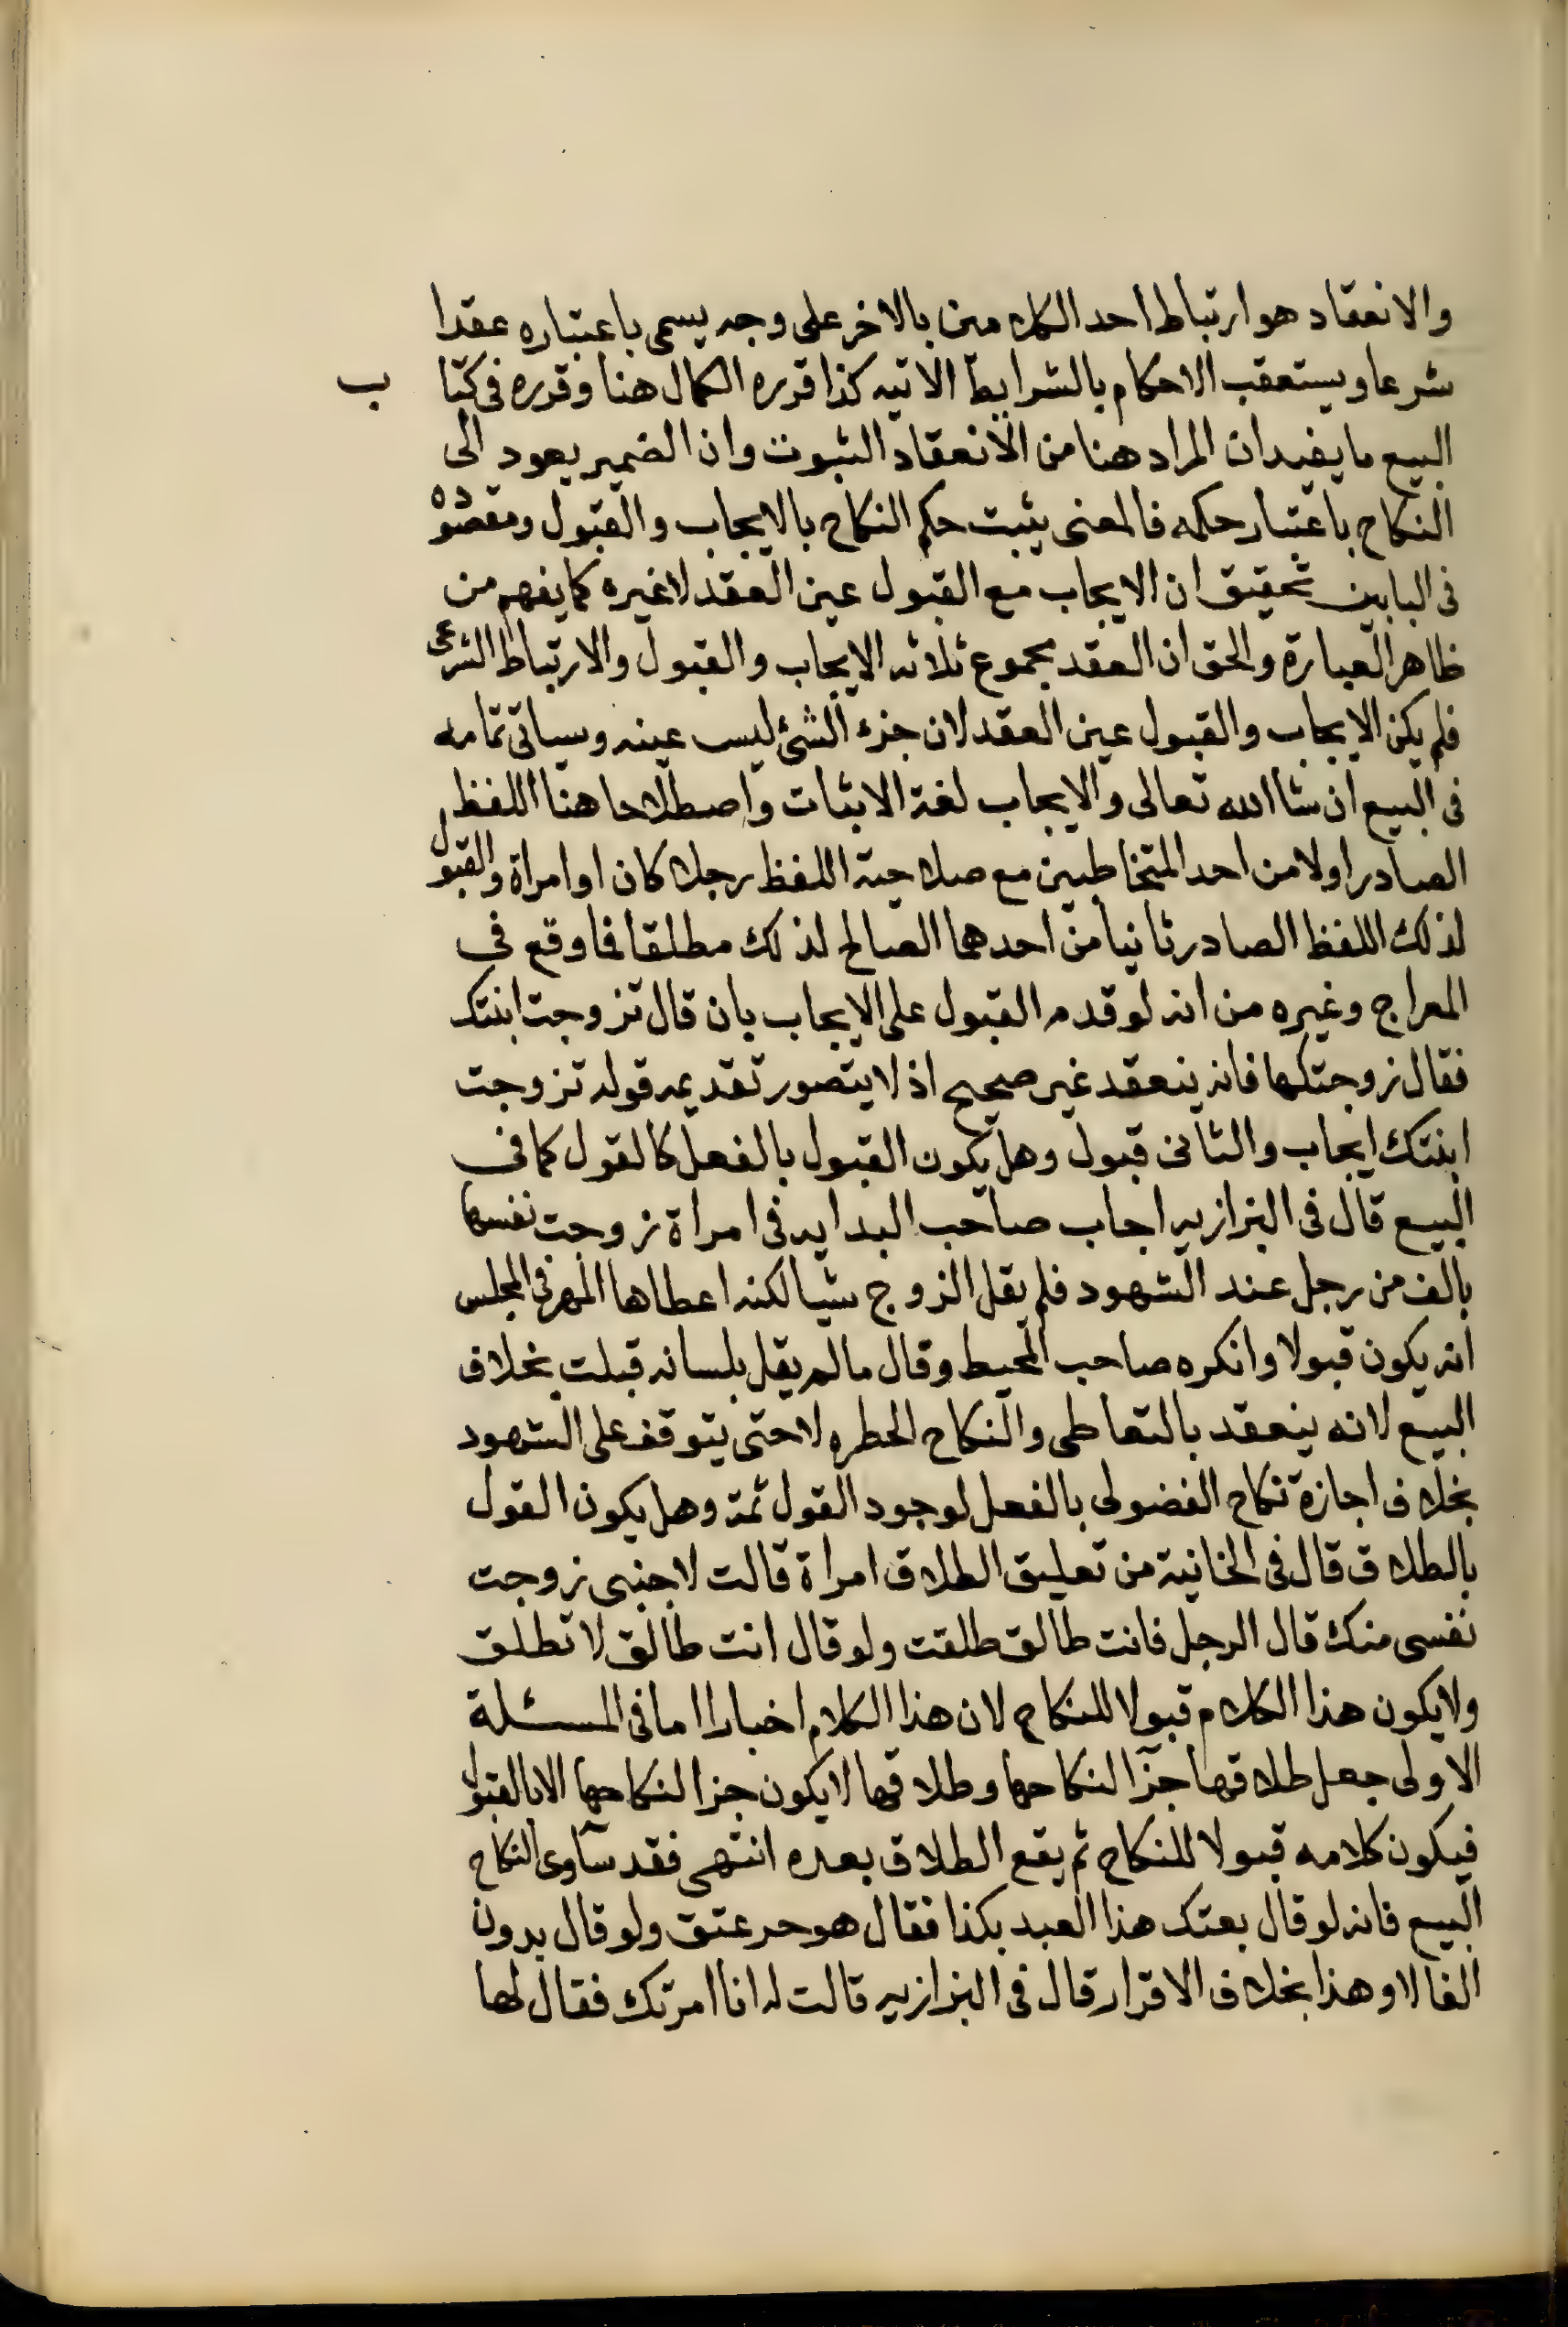 والانعقاد هو ارتباط احد الكلامين بالاخر على وجه يسمى باعتباره عقدا
شرعا ويستعقب الاحكام بالشرايط الاتيه كذا قرره الكمال هنا وقرره فى كتا ب
البيع ما يفيد ان المراد هنا من الانعقاد الثبوت وان الضمير يعود الى
النكاح باعتبار حكمه فالمعنى يثبت حكم النكاح بالايجاب والقبول ومقصوده
فى البابين تحقيق ان الايجاب مع القبول عين العقد لاغيره كما يفهم من
ظاهر العبارة والحق ان العقد مجموع ثلاثه الايجاب والقبول والارتباط الشرعى
فلم يكن الايجاب والقبول عين العقد لان جزء الشئ ليس عينه وسياتى تمامه
فى البيع ان شا الله تعالى والايجاب لغة الاثبات واصطلاحا هنا اللفظ
الصادر اولا من احد المتخاطبين مع صلاحية اللفظ رجلا كان او امراة والقبول
لذلك اللفظ الصادر ثانيا من احدهما الصالح لذلك مطلقا فما وقع في
المعراج وغيره من انه لو قدم القبول على الايجاب بان قال تزوجت ابنتك
فقال زوجتكها فانه ينعقد غير صحيح اذ لا يتصور تقديمه قوله تزوجت
ابنتك ايجاب والثانى قبول وهل يكون القبول بالفعل كالقول كما فى
البيع قال فى البزازيه اجاب صاحب البدايه فى امراة زوجت نفسها
بالف من رجل عند الشهود فلم يقل الزوج شيا لكنه اعطاها المهر فى المجلس
انه يكون قبولا وانكره صاحب المحيط وقال مالم يقل بلسانه قبلت بخلاف
البيع لانه ينعقد بالتعاطى والنكاح لخطره لا حتى يتوقف على الشهود
بخلاف اجازة نكاح الفضولى بالفعل لوجود القول ثمة وهل يكون القول
بالطلاق قال فى الخانية من تعليق الطلاق امراة قالت لاجنبى زوجت
نفسى منك قال الرجل فانت طالق طلقت ولو قال انت طالق لا تطلق
ولا يكون هذا الكلام قبولا للنكاح لان هذا الكلام اخبار اما فى المسئلة
الاولى جعل طلاقها جزا لنكاحها وطلاقها لا يكون جزا لنكاحها الا بالقبول
فيكون كلامه قبولا للنكاح ثم يقع الطلاق بعده انتهى فقد ساوى النكاح
البيع فانه لو قال بعتك هذا العبد بكذا فقال هو حر عتق ولو قال بدون
الفا لا وهذا بخلاف الاقرار قال فى البزازيه قالت له انا امرتك فقال لها